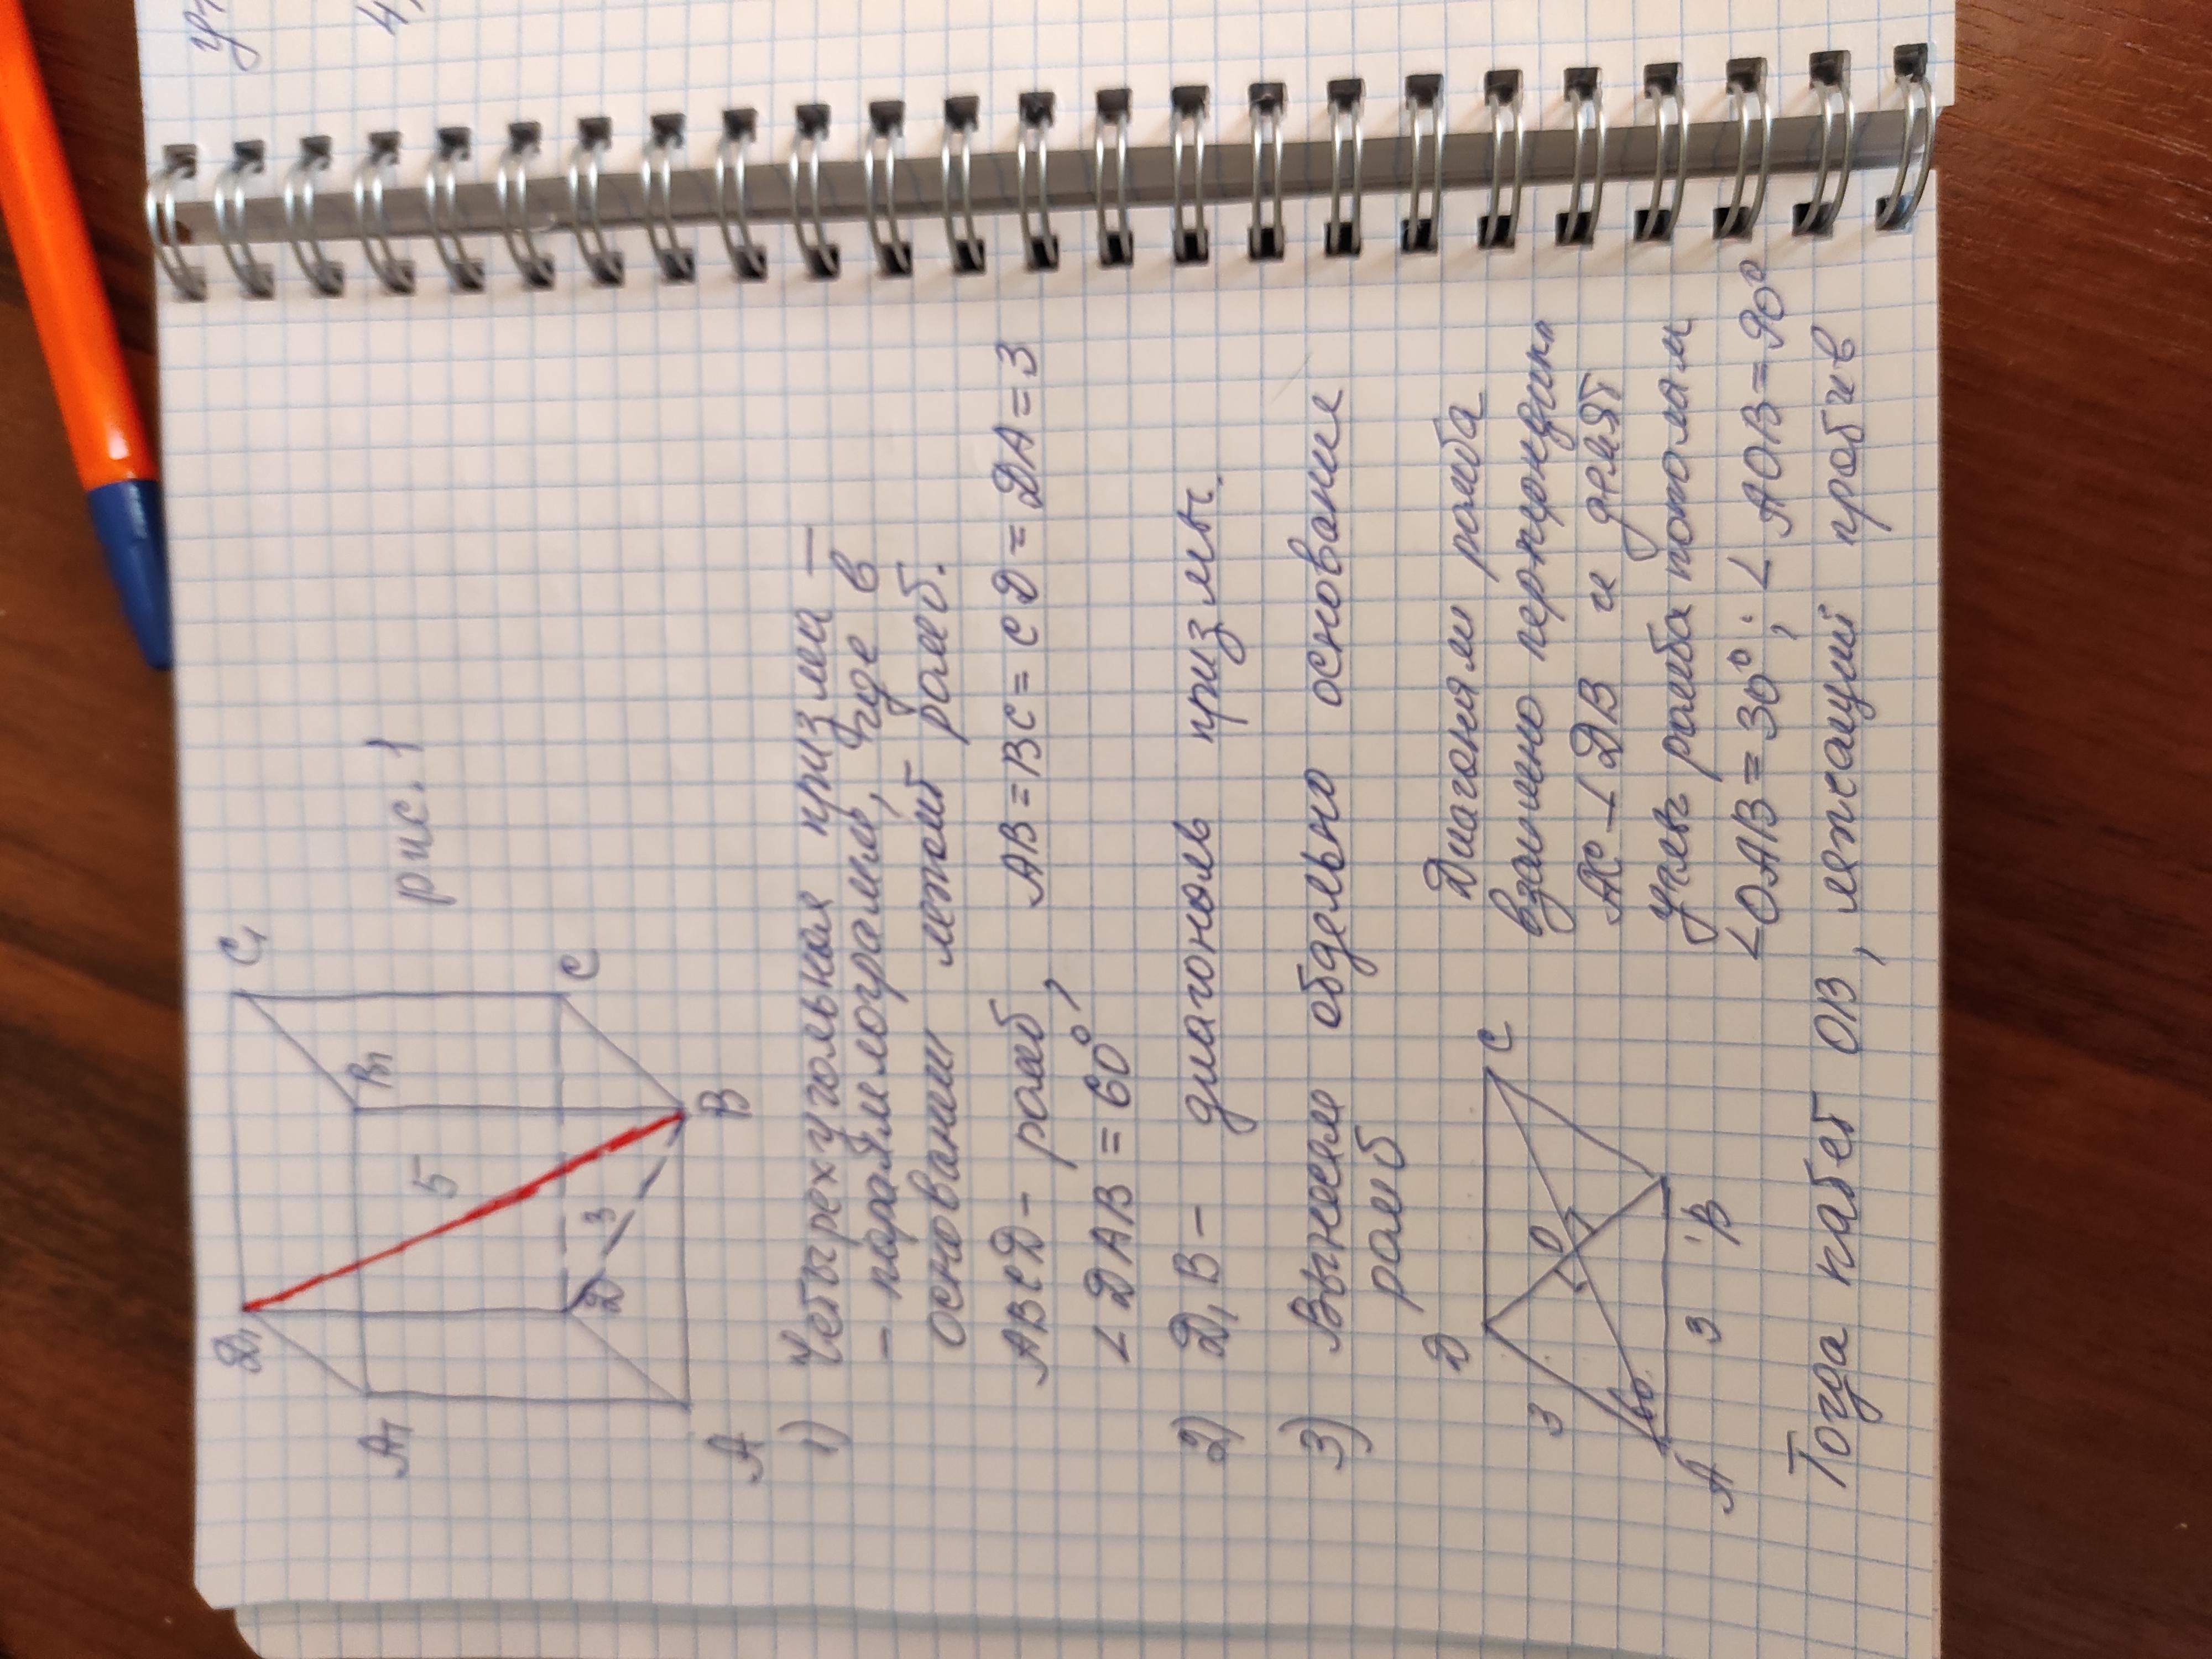 D₁
C₁
A₁
B₁
рис. 1
5
D
3
C
A
B
1) Четырехугольная призма –
– параллелограмм, где в
основании лежит ромб.
ABCD – ромб, AB = BC = CD = DA = 3
∠DAB = 60°
2) D₁B – диагональ призмы.
3) Вынесем отдельно основание
ромб
D
C
3
O
60.
A
3
B
Диагонали ромба
взаимно перпендик.
AC ⊥ DB и делят
углы ромба пополам
∠OAB = 30°; ∠AOB = 90°
Тогда катет OB, лежащий против